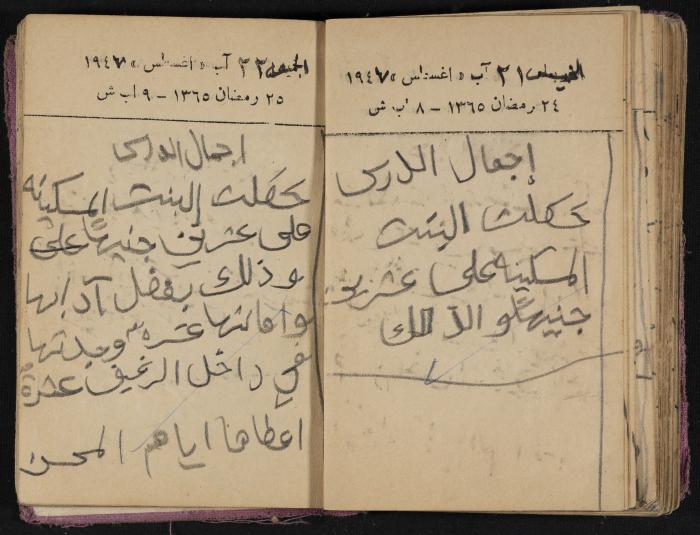 الخميس ٢١ آب « اغسطس » ١٩٤٧
٢٤ رمضان ١٣٦٥ – ٨ اب ش
إجمال الدرس
حصلت البنت
المسكينه على عشرين
جنيهاً و الذالك
الجمعه ٢٢ آب « اغسطس » ١٩٤٧
٢٥ رمضان ١٣٦٥ – ٩ اب ش
اجمال الدرس
حصلت البنت المسكينه
على عشرين جنيهاً على
وذلك بفضل آدابها
وامانتها عشره وجدتها
في داخل الرغيف عشره
اعطاها اياهم المحسن